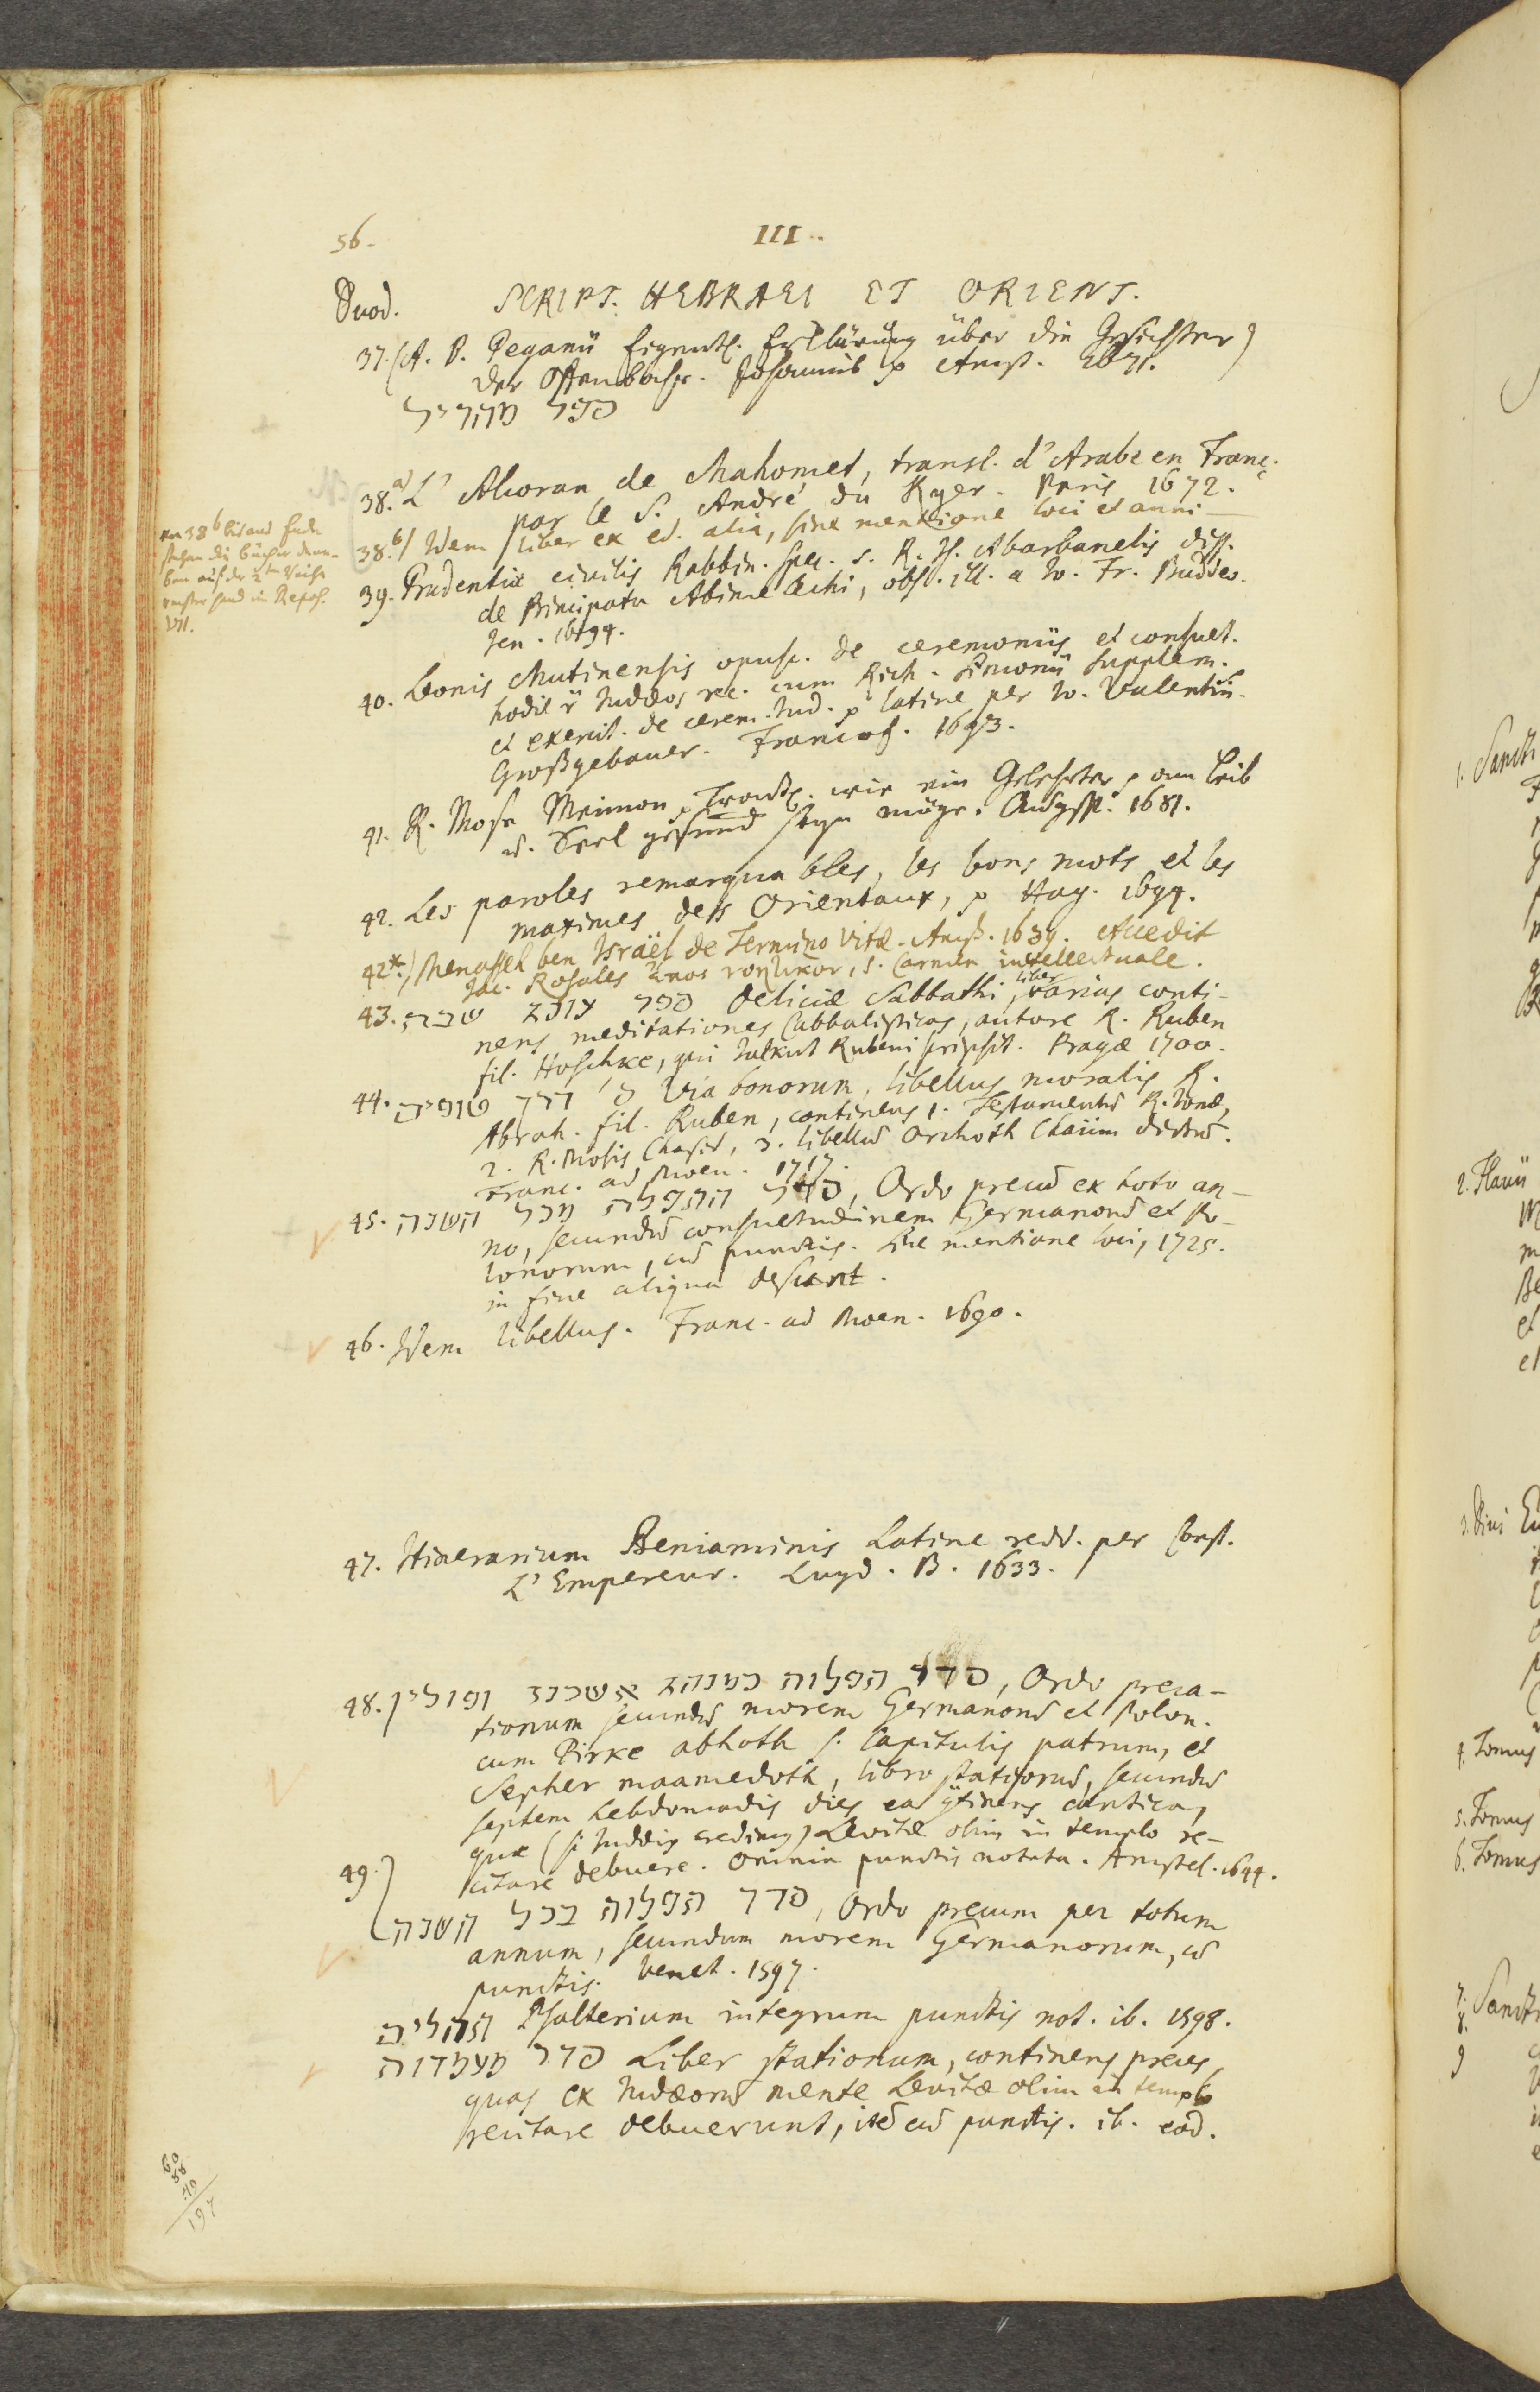 56.
III.
Duod. SCRIPT. HEBRAEI ET ORIENT.
37. (A. B. Peganii Eigentl. Erklärung über die Gesichter)
der Offenbahr. Johannis p Amst. 1671.
ספר מהריל
38.a) L' Alcoran de Mahomet, transl. d'Arabe en Franc.
par le S. André du Ryer. Paris 1672.
38.b) Idem liber ex ed. alia, sine mentione loci et anni
39. Prudentiæ civilis Rabbin. spec. s. R. Is. Abarbanelis diss.
de Principatu Abimelechi, obs. ill. a Io. Fr. Buddeo.
Jen. 1694.
40. Leonis Mutinensis opusc. de ceremoniis et consuet.
hodie Judæos rec. cum Rich. Simonii supplem.
et exercit. de cerem. Jud. p latine per Io. Valentin.
Großgebauer. Francof. 1693.
41. R. Mose Meimon, Tractl. wie ein Gelehrter p am Leib
u. Seel gesund seyn möge. Augsp. 1681.
42. Les paroles remarquables, les bons mots et les
maximes des Orientaux, p Hag. 1694.
42*.) Menasseh ben Israël de Termino Vitæ. Amst. 1639. Accedit
Jac. Rosales s. Carmen intellectuale.
43. ספר עונג שבת Deliciæ Sabbathi, liber varias conti-
nens meditationes Cabbalisticas, autore R. Ruben
fil. Hoschke, qui Jalkut Rubeni scripsit. Pragæ 1700.
44. ס' דרך טובים Via bonorum, libellus moralis R.
Abrah. fil. Ruben, continens 1. Testamentum R. Jonæ,
2. R. Mosis Chasid, 3. libellum Orchoth Chaiim dictum.
Franc. ad Moen. 1717.
45. סדר התפלה מכל השנה, Ordo precum ex toto an-
no, secundum consuetudinem Germanorum et Po-
lonorum, cum punctis. Sine mentione loci, 1725.
in fine aliqua desunt.
46. Idem libellus. Franc. ad Moen. 1690.
47. Itinerarium Beniaminis Latine redd. per Const.
L' Empereur. Lugd. B. 1633.
48. סדר תפלות כמנהג אשכנז ופולין, Ordo preca-
tionum secundum morem Germanorum et Polon.
cum Pirke abhoth s. Capitulis patrum, et
Sepher maamedoth, libro stationum, secundum
septem hebdomadis dies ea continens cantica,
quæ (si Judæis credimus) Levitæ olim in templo re-
citare debuere. Omnia punctis notata. Amstel. 1644.
49. סדר תפלות בכל השנה, Ordo precum per totum
annum, secundum morem Germanorum, cum
punctis. Venet. 1597.
תהלים Psalterium integrum punctis not. ib. 1598.
סדר מעמדות Liber stationum, continens preces,
quas ex Judæorum mente Levitæ olim in templo
recitare debuerunt, item cum punctis. ib. eod.
von 38b bis ans Ende
stehen die Bücher dane-
ben auf der 2ten Reihe
rechter Hand im Repos.
VII.
60
88
49
197